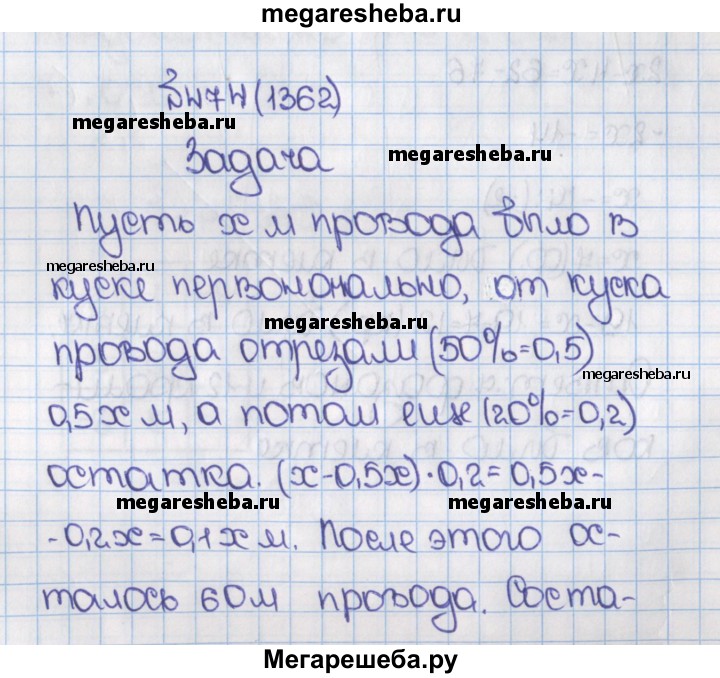 megaresheba.ru
№474(1362)
megaresheba.ru
megaresheba.ru
Задача
Пусть x м провода было в
megaresheba.ru
куске первоначально, от куска
megaresheba.ru
провода отрезали (50%=0,5)
megaresheba.ru
0,5x м, а потом еще (20%=0,2)
остатка. (x-0,5x)·0,2=0,5x-
megaresheba.ru megaresheba.ru
-0,2x=0,1x м. После этого ос-
талось 60м провода. Соста-
Мегарешеба.ру